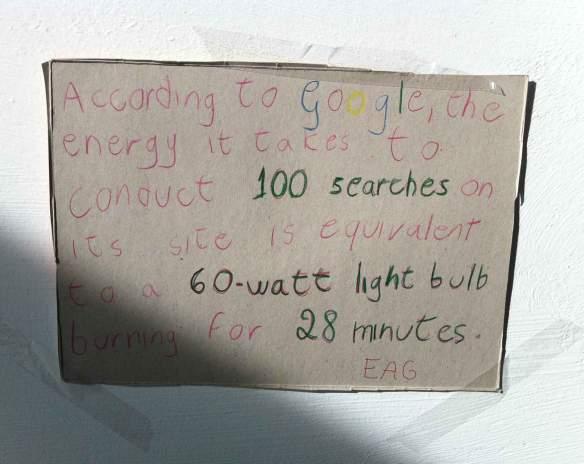 According to Google, the
energy it takes to
conduct 100 searches on
its site is equivalent
to a 60-watt light bulb
burning for 28 minutes.
EAG